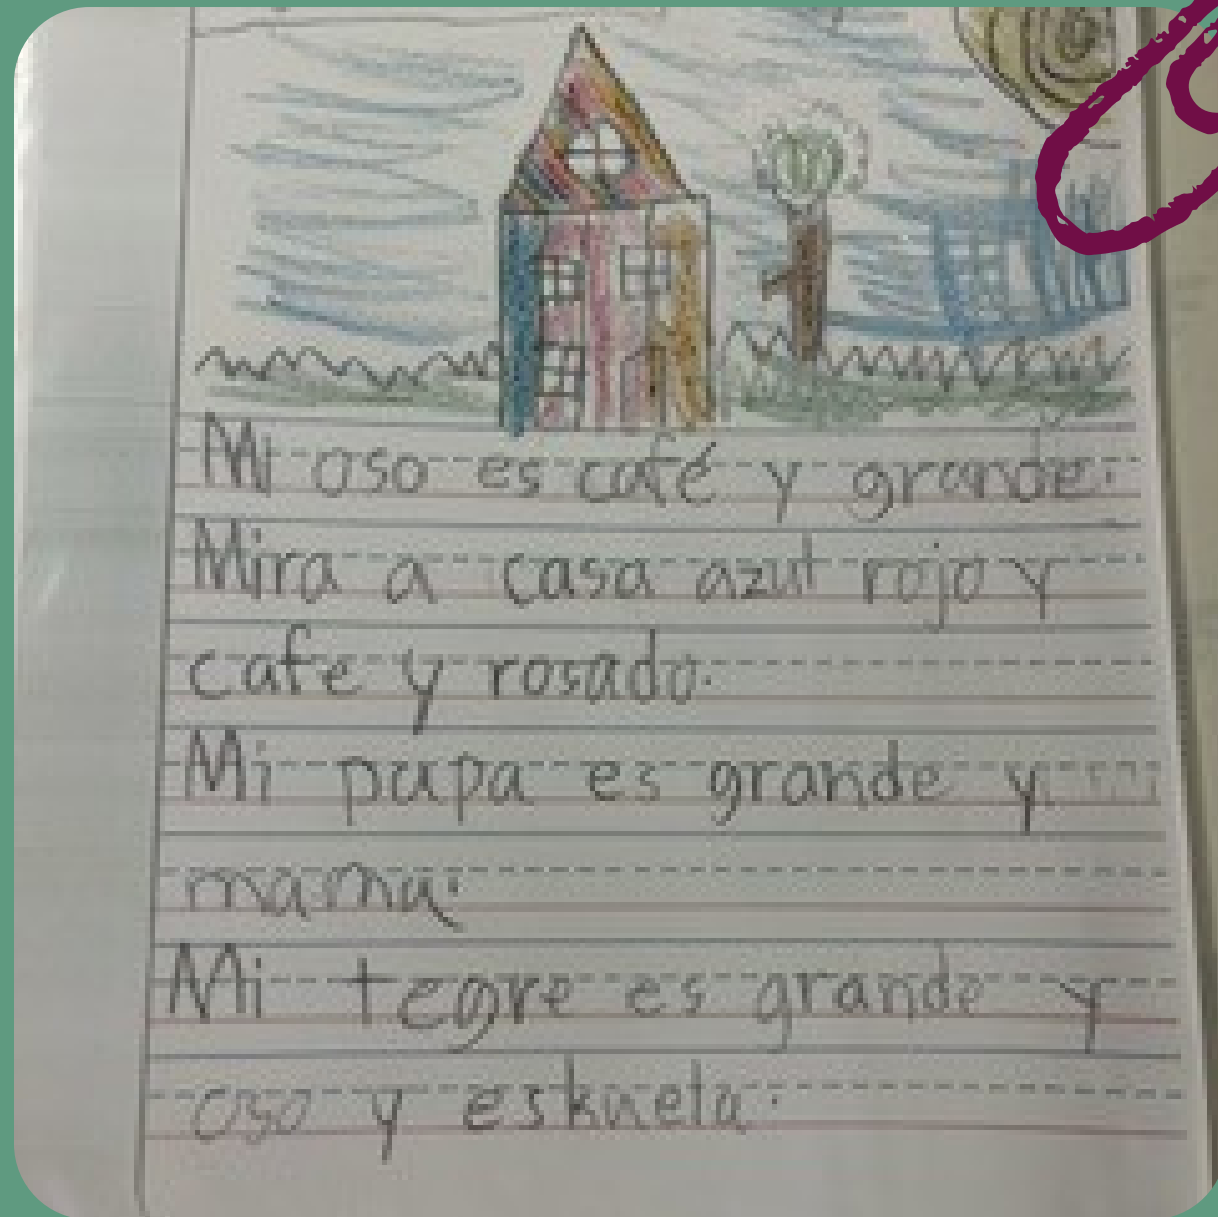 Mi oso es café y grande.
Mira a casa azul rojo y
cafe y rosado.
Mi papa es grande y
mama.
Mi tegre es grande y
oso y eskuela.